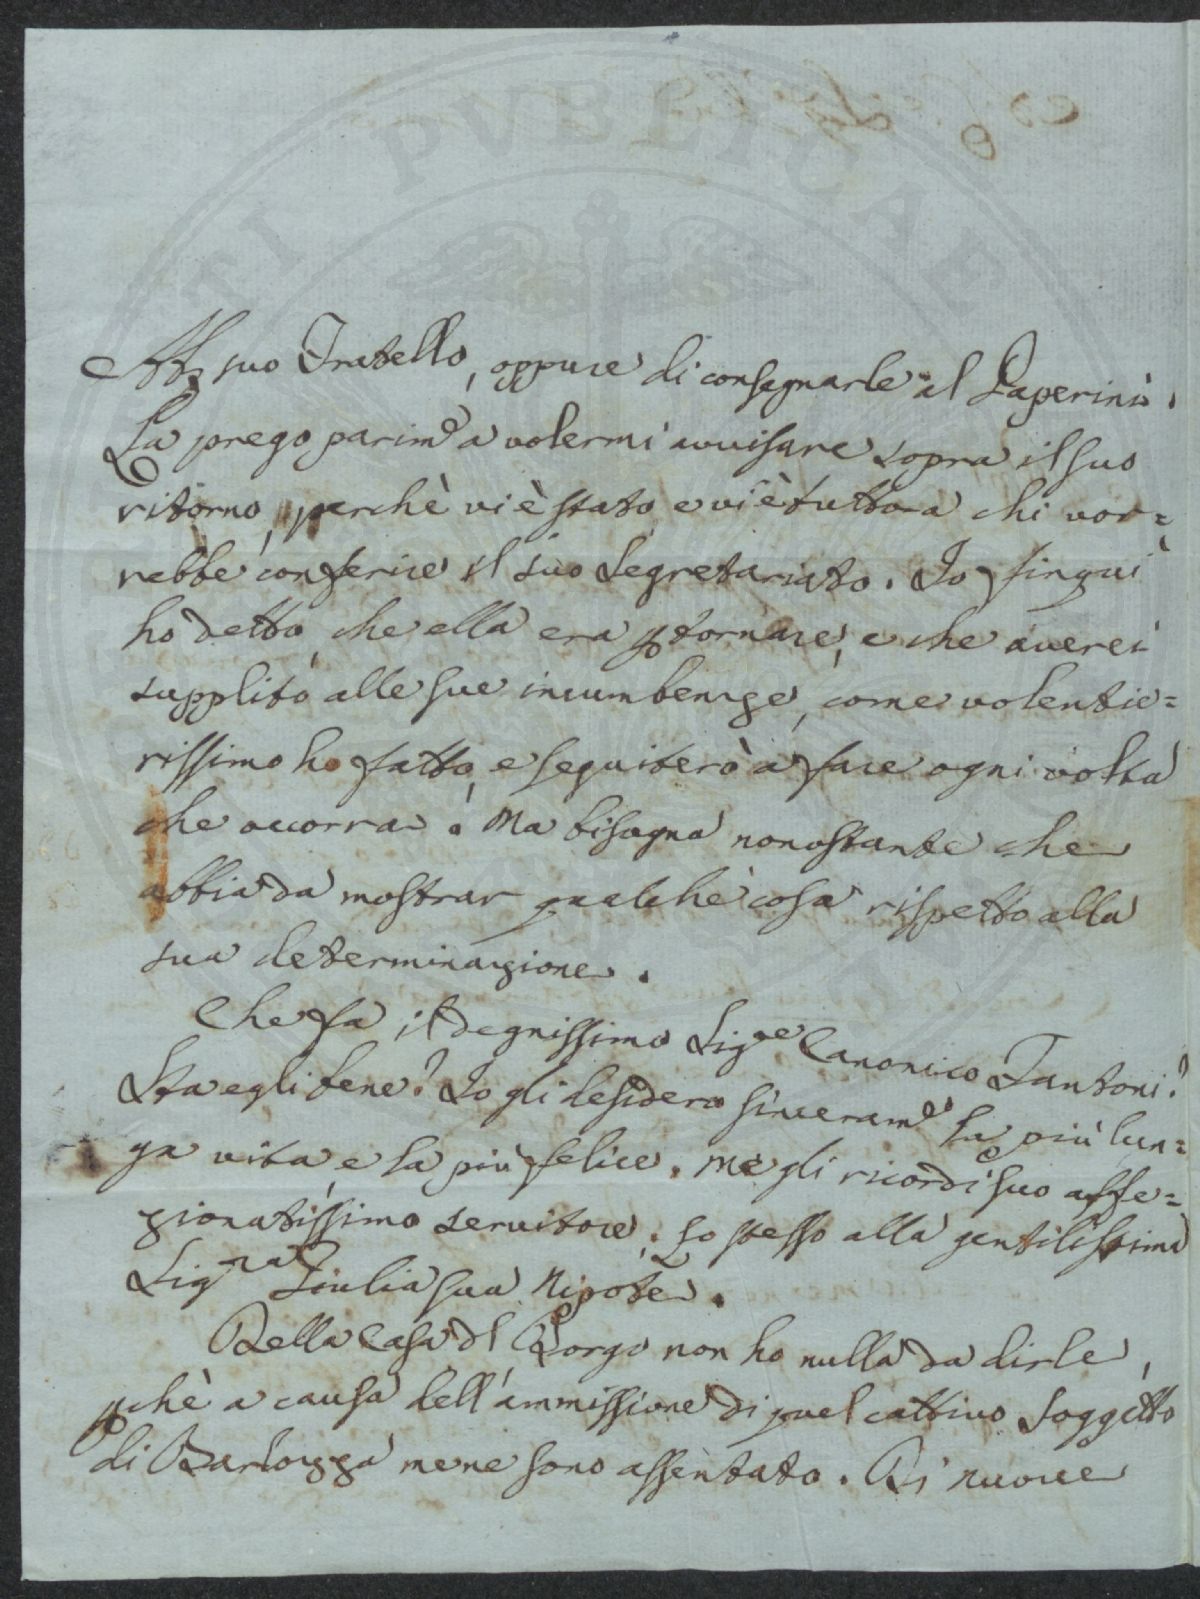 PVBLICAE
suo Fratello, oppure di consegnarle al Paperini.
La prego parim.e a volermi avvisare sopra il suo
ritorno, perchè vi è stato e vi è tuttora chi vor=
rebbe conferire il suo Segretariato. Io finqui
ho detto, che ella era p tornare, e che averei
supplito alle sue incumbenze, come volentie=
rissimo ho fatto, e seguiterò a fare ogni volta
che occorra. Ma bisogna nonostante che
abbia da mostrar qualche cosa rispetto alla
sua determinazione.
Che fa il degnissimo Sig.re Canonico Fantoni?
Sta egli bene? Io gli desidero sinceram.e la più lun=
ga vita, e la più felice. Me gli ricordi suo affe=
zionatissimo servitore. Lo stesso alla gentilissima
Sig.ra Giulia sua Nipote.
Della Casa dl Borgo non ho nulla da dirle,
pchè a causa dell'ammissione di quel cattivo soggetto
di Barlozza mene sono assentato. Di nuove